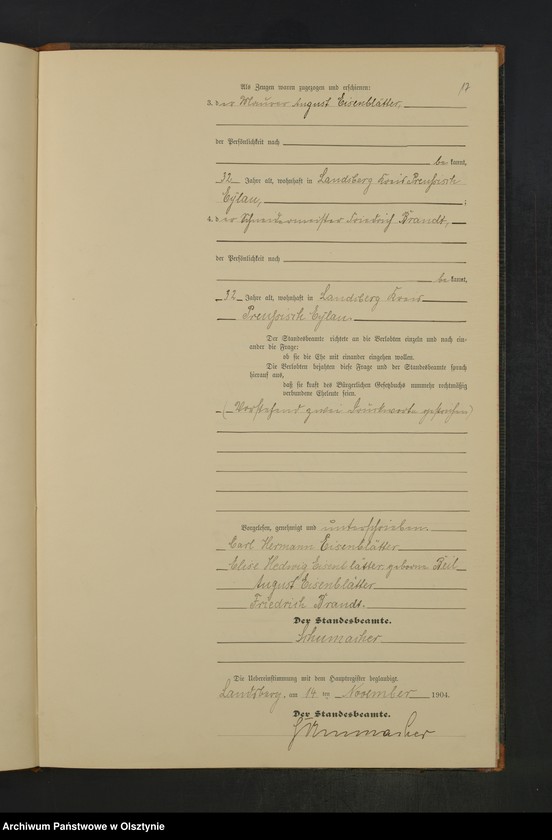 17
Als Zeugen waren zugezogen und erschienen:
3. der Maurer August Eisenblätter,
der Persönlichkeit nach
be kannt,
32 Jahre alt, wohnhaft in Landsberg Kreis Preußisch
Eylau, ;
4. der Schneidermeister Friedrich Brandt,
der Persönlichkeit nach
be kannt,
32 Jahre alt, wohnhaft in Landsberg Kreis
Preußisch Eylau.
Der Standesbeamte richtete an die Verlobten einzeln und nach ein-
ander die Frage:
ob sie die Ehe mit einander eingehen wollen.
Die Verlobten bejahten diese Frage und der Standesbeamte sprach
hierauf aus,
daß sie kraft des Bürgerlichen Gesetzbuchs nunmehr rechtmäßig
verbundene Eheleute seien.
(Vorstehend zwei Druckworte gestrichen)
Vorgelesen, genehmigt und unterschrieben.
Carl Hermann Eisenblätter
Elise Hedwig Eisenblätter geborne Beil
August Eisenblätter
Friedrich Brandt.
Der Standesbeamte.
Schumacher
Die Uebereinstimmung mit dem Hauptregister beglaubigt.
Landsberg, am 14 ten November 1904.
Der Standesbeamte.
Schumacher
Archiwum Państwowe w Olsztynie